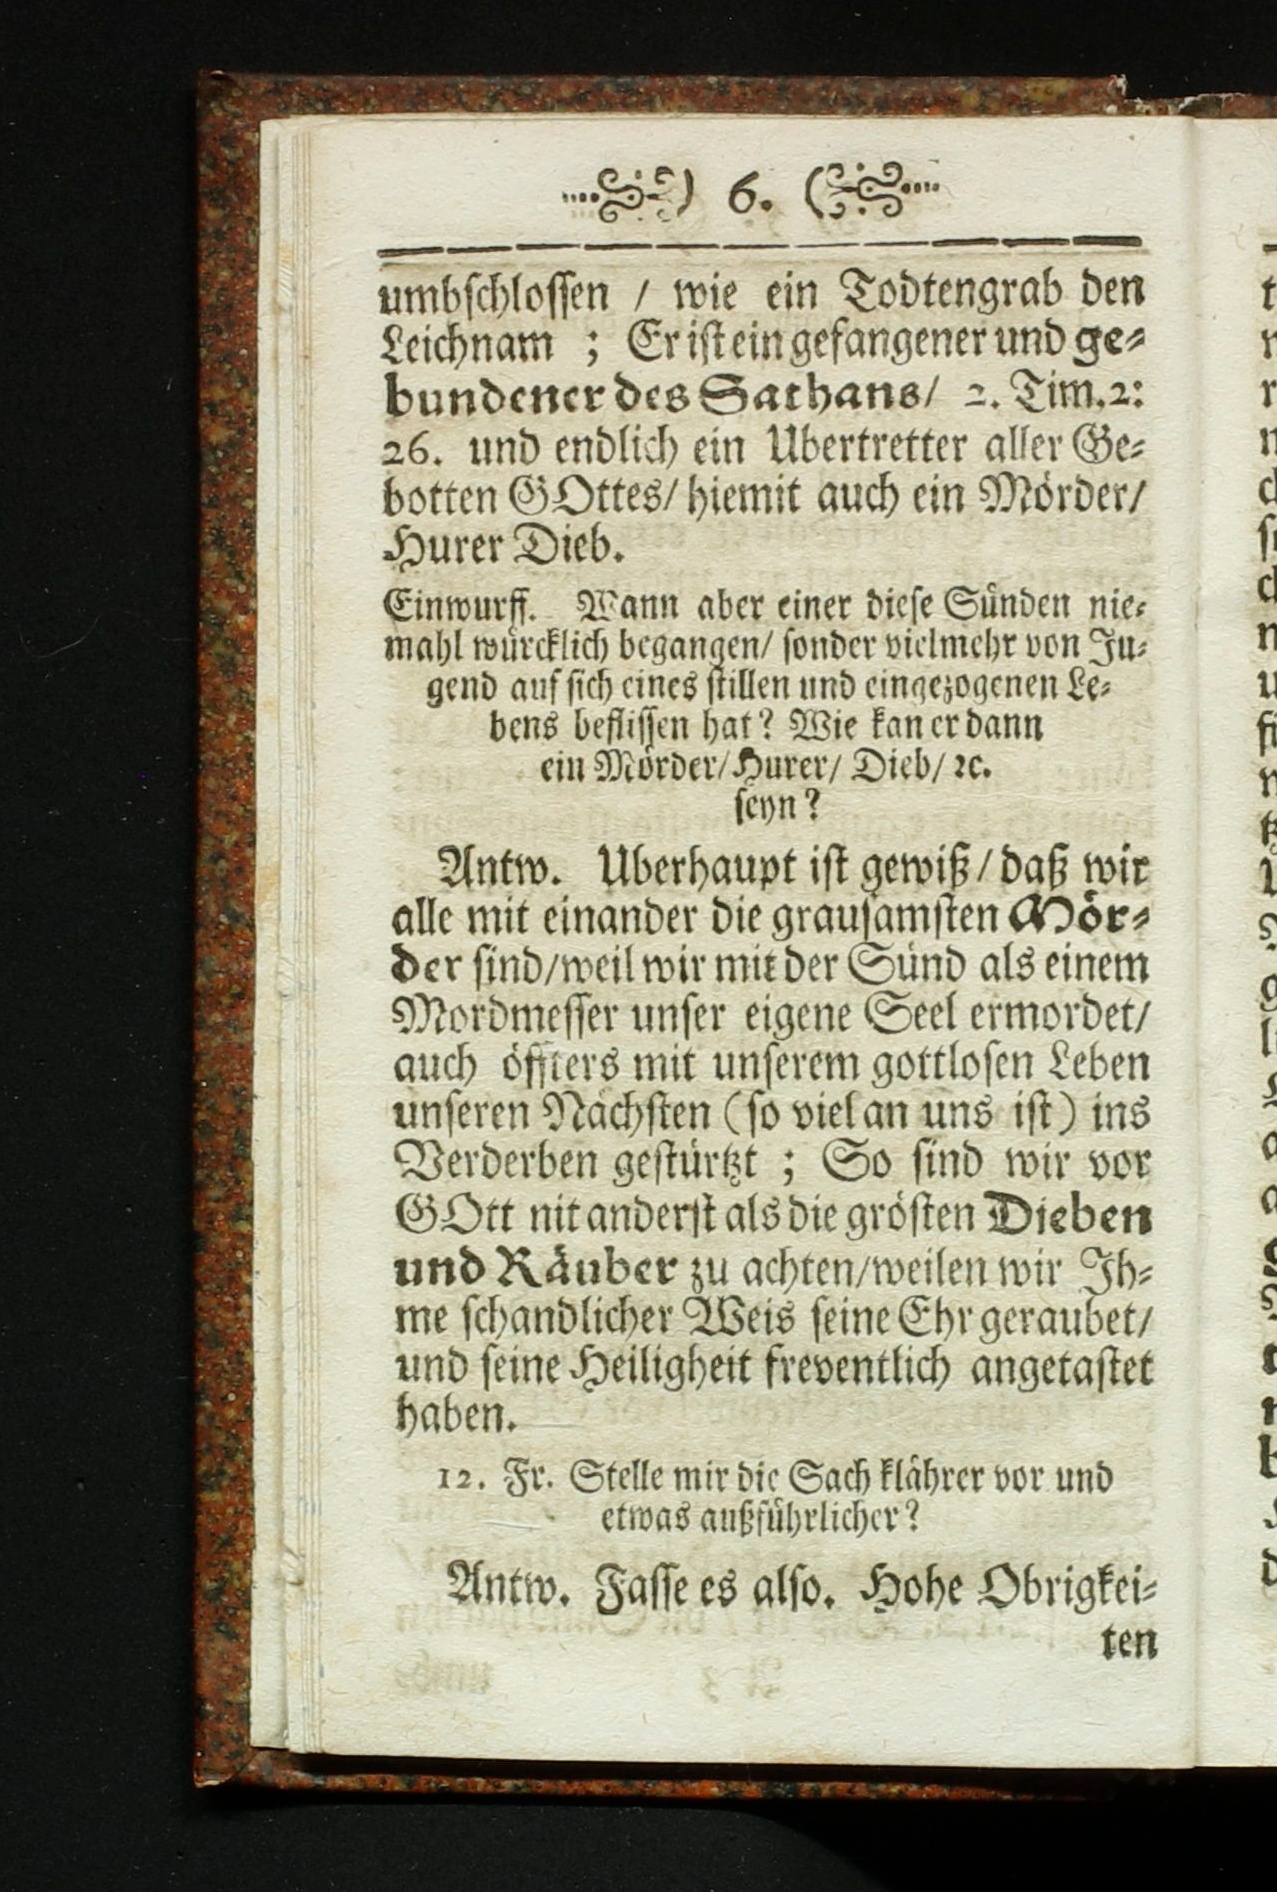 ) 6. (
umbschlossen / wie ein Todtengrab den
Leichnam ; Er ist ein gefangener und ge-
bundener des Sathans/ 2. Tim. 2:
26. und endlich ein Ubertretter aller Ge-
botten GOttes/ hiemit auch ein Mörder/
Hurer Dieb.
Einwurff. Wann aber einer diese Sünden nie-
mahl würcklich begangen/ sonder vielmehr von Ju-
gend auf sich eines stillen und eingezogenen Le-
bens beflissen hat? Wie kan er dann
ein Mörder/ Hurer/ Dieb/ ꝛc.
seyn?
Antw. Uberhaupt ist gewiß / daß wir
alle mit einander die grausamsten Mör-
der sind/weil wir mit der Sünd als einem
Mordmesser unser eigene Seel ermordet/
auch öffters mit unserem gottlosen Leben
unseren Nächsten (so viel an uns ist) ins
Verderben gestürtzt ; So sind wir vor
GOtt nit anderst als die grösten Dieben
und Räuber zu achten/weilen wir Ih-
me schandlicher Weis seine Ehr geraubet/
und seine Heiligheit freventlich angetastet
haben.
12. Fr. Stelle mir die Sach klährer vor und
etwas außführlicher?
Antw. Fasse es also. Hohe Obrigkei-
ten